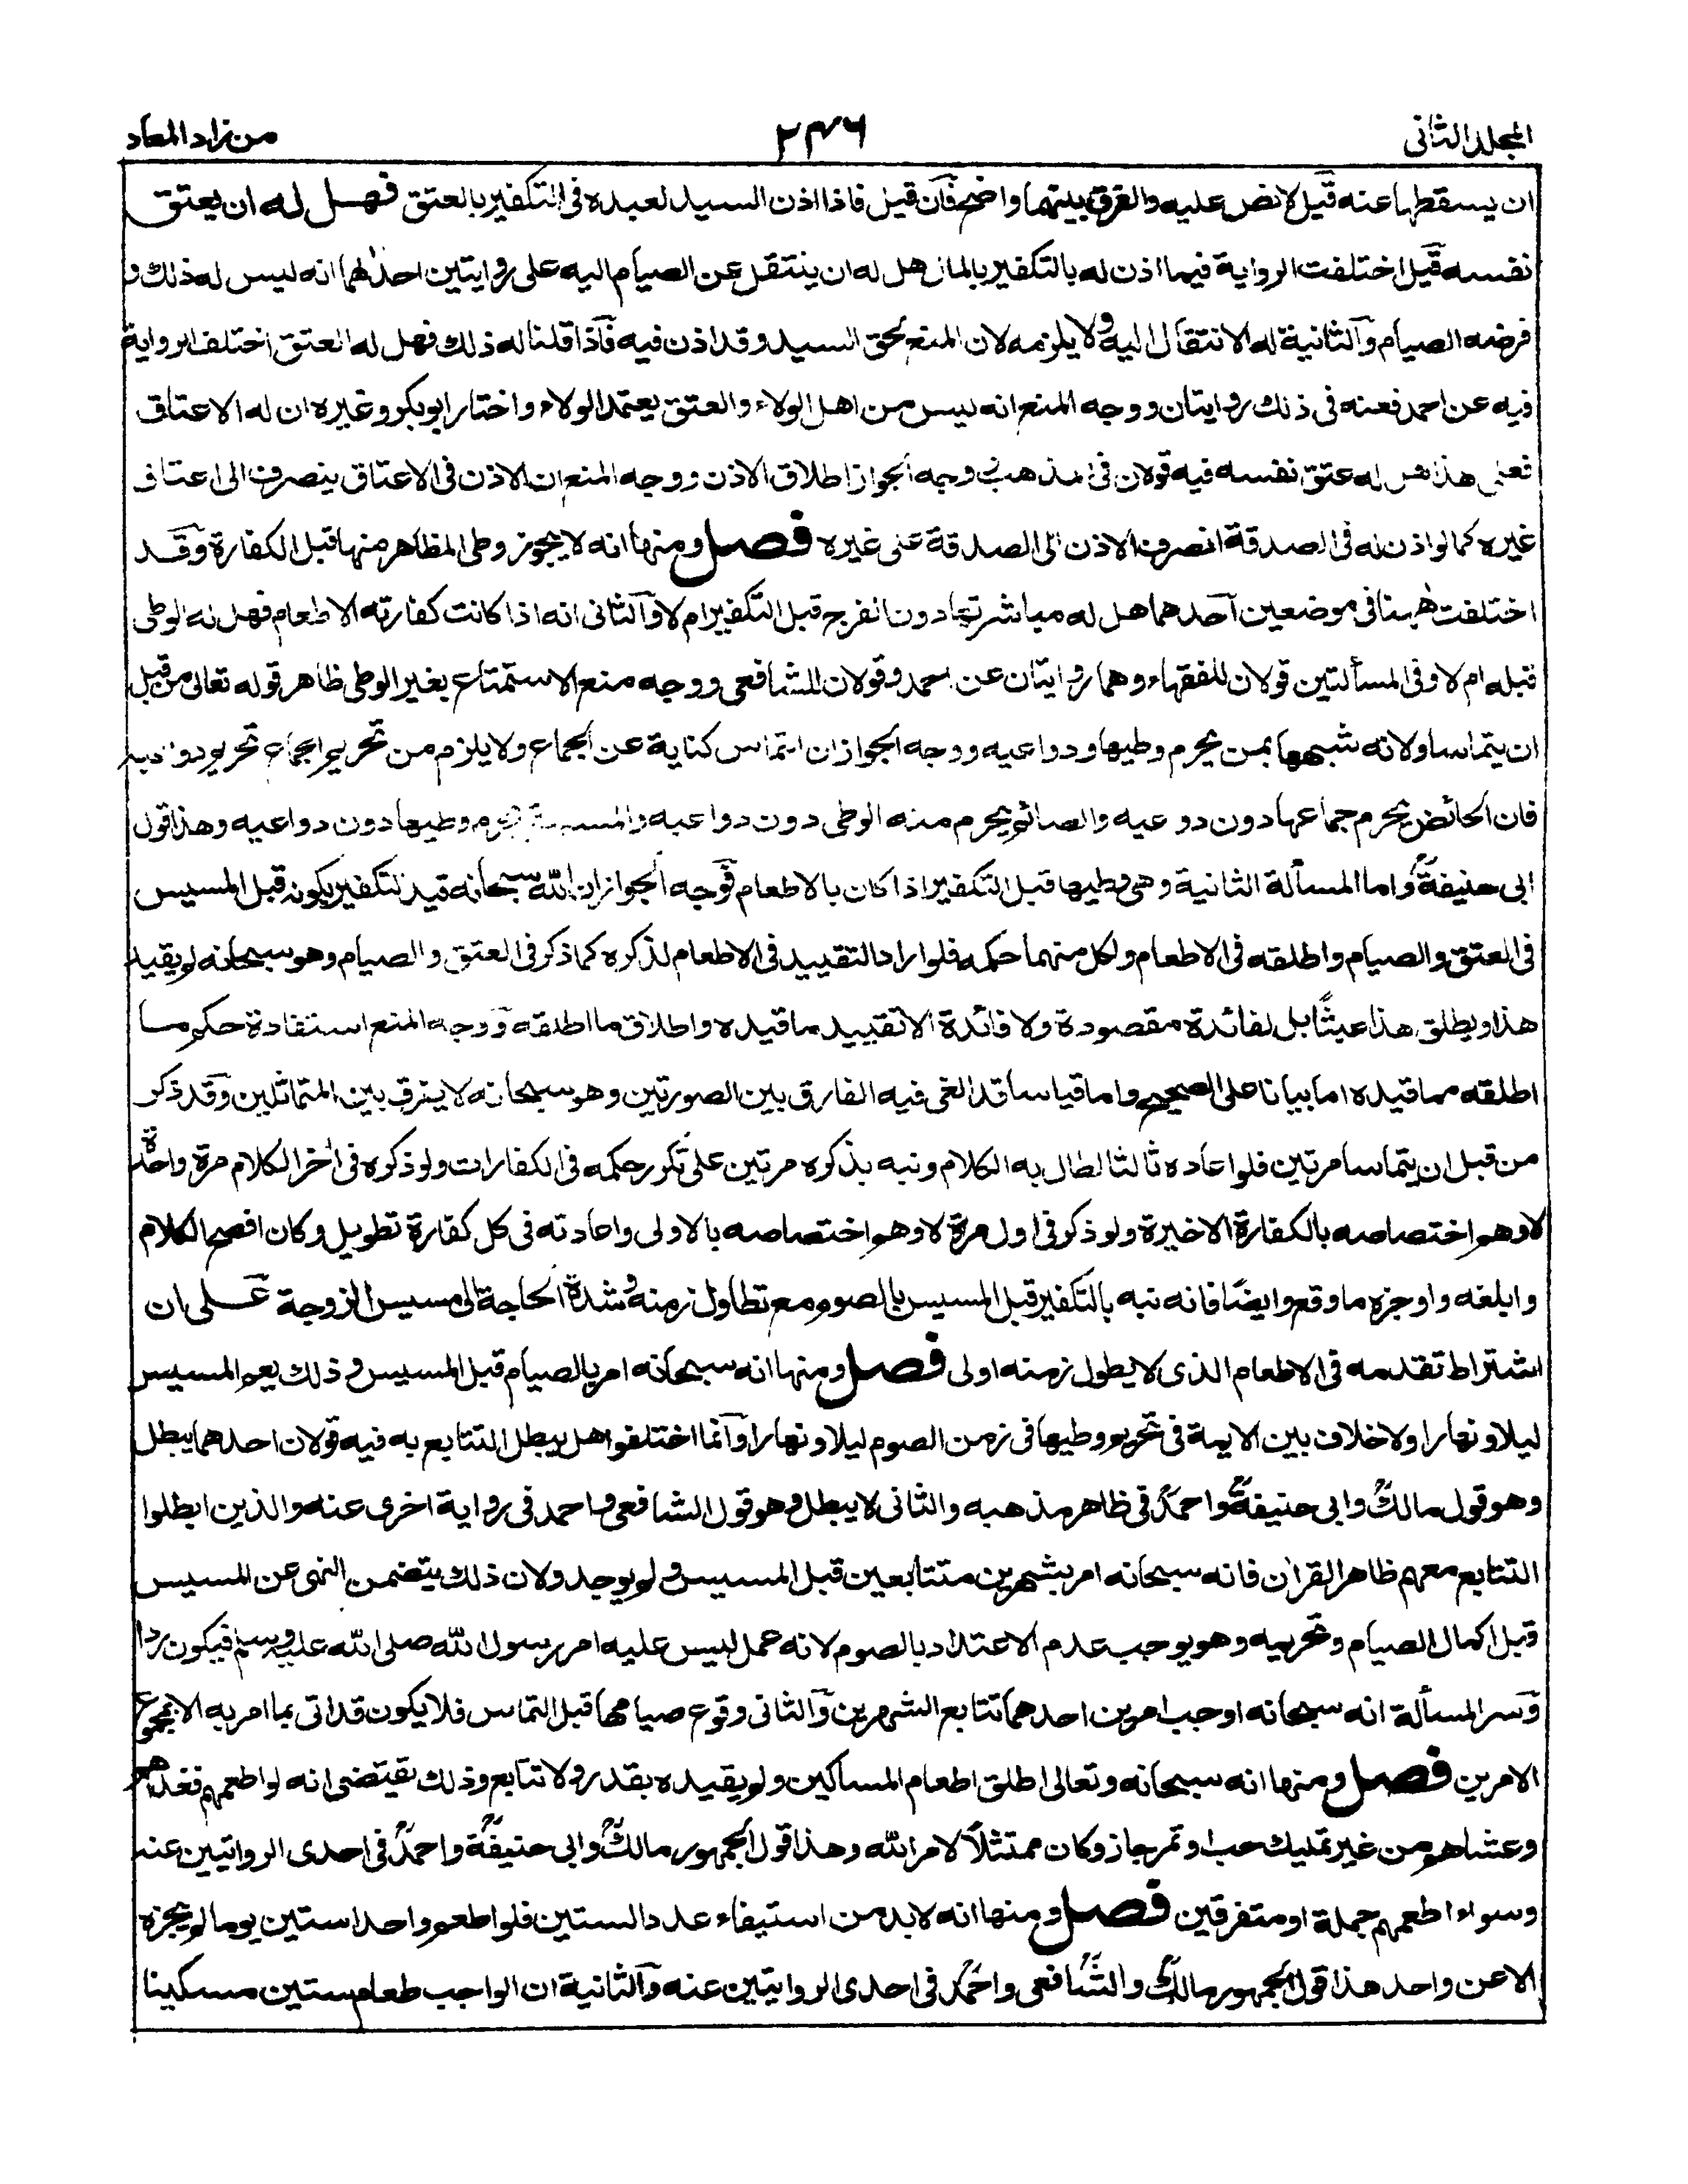 المجلد الثاني
٢٣٦
من زاد المعاد
ان يسقطها عنه قيل لا نص عليه والفرق بينهما واضح فان قيل فاذا اذن السيد لعبده في التكفير بالعتق فهل له ان يعتق
نفسه قيل اختلفت الرواية فيما اذن له بالتكفير بالمال هل له ان ينتقل عن الصيام اليه على روايتين احدٰهما انه ليس له ذلك و
فرضه الصيام والثانية له الانتقال اليه ولا يلزمه لان المنع لحق السيد وقد اذن فيه فاذا قلنا له ذلك فهل له العتق اختلف الرواية
فيه عن احمد فعنه في ذلك روايتان ووجه المنع انه ليس من اهل الولاء والعتق يعتمد الولاء واختار ابوبكر وغيره ان له الاعتاق
فعلى هذا هل له عتق نفسه فيه قولان في المذهب وجه الجواز اطلاق الاذن ووجه المنع ان الاذن في الاعتاق ينصرف الى اعتاق
غيره كما لو اذن له في الصدقة انصرف الاذن الى الصدقة على غيره فصل ومنها انه لا يجوز وطى المظاهر منها قبل الكفارة وقد
اختلفت ههنا في موضعين احدهما هل له مباشرتها دون الفرج قبل التكفير ام لا والثاني انه اذا كانت كفارته الاطعام فهل له الوطى
قبله ام لا وفي المسألتين قولان للفقهاء وهما روايتان عن احمد وقولان للشافعي ووجه منع الاستمتاع بغير الوطى ظاهر قوله تعالى من قبل
ان يتماسا ولانه شبهها بمن يحرم وطيها ودواعيه ووجه الجواز ان التماس كناية عن الجماع ولا يلزم من تحريم الجماع تحريم دواعيه
فان الحائض يحرم جماعها دون دواعيه والصائم يحرم منه الوطى دون دواعيه والمسبية يحرم وطيها دون دواعيه وهذا قول
ابي حنيفة واما المسألة الثانية وهي وطيها قبل التكفير اذا كان بالاطعام فوجه الجواز ان الله سبحانه قيد التكفير بكونه قبل المسيس
في العتق والصيام واطلقه في الاطعام ولكل منهما حكمه فلو اراد التقييد في الاطعام لذكره كما ذكر في العتق والصيام وهو سبحانه لم يقيد
هذا ويطلق هذا عبثًا بل لفائدة مقصودة ولا فائدة الا تقييد ما قيده واطلاق ما اطلقه ووجه المنع استفادة حكم ما
اطلقه مما قيده اما بيانا على الصحيح واما قياسا قد الغى فيه الفارق بين الصورتين وهو سبحانه لا يفرق بين المتماثلين وقد ذكر
من قبل ان يتماسا مرتين فلو اعاده ثالثا لطال به الكلام ونبه بذكره مرتين على تكرر حكمه في الكفارات ولو ذكره في اٰخر الكلام مرة واحدة
لاوهم اختصاصه بالكفارة الاخيرة ولو ذكر في اول مرة لاوهم اختصاصه بالاولى واعادته في كل كفارة تطويل وكان افصح الكلام
وابلغه واوجزه ما وقع وايضًا فانه نبه بالتكفير قبل المسيس بالصوم مع تطاول زمنه وشدة الحاجة الى مسيس الزوجة على ان
اشتراط تقدمه في الاطعام الذي لا يطول زمنه اولى فصل ومنها انه سبحانه امر بالصيام قبل المسيس وذلك يعم المسيس
ليلا ونهارا ولا خلاف بين الايمة في تحريم وطيها في زمن الصوم ليلا ونهارا وانما اختلفوا هل يبطل التتابع به فيه قولان احدهما يبطل
وهو قول مالك وابي حنيفة واحمد في ظاهر مذهبه والثاني لا يبطل وهو قول الشافعي واحمد في رواية اخرى عنه والذين ابطلوا
التتابع معهم ظاهر القراٰن فانه سبحانه امر بشهرين متتابعين قبل المسيس ولم يوجد ولان ذلك يتضمن النهي عن المسيس
قبل اكمال الصيام وتحريمه وهو يوجب عدم الاعتداد بالصوم لانه عمل ليس عليه امر رسول الله صلى الله عليه وسلم فيكون ردا
وسر المسألة انه سبحانه اوجب امرين احدهما تتابع الشهرين والثاني وقوع صيامهما قبل التماس فلا يكون قد اتى بما امر به الا بمجموع
الامرين فصل ومنها انه سبحانه وتعالى اطلق اطعام المساكين ولم يقيده بقدر ولا تتابع وذلك يقتضي انه لو اطعمهم فغداهم
وعشاهم من غير تمليك حب او تمر جاز وكان ممتثلًا لامر الله وهذا قول الجمهور مالك وابي حنيفة واحمد في احدى الروايتين عنه
وسواء اطعمهم جملة او متفرقين فصل ومنها انه لا بد من استيفاء عدد الستين فلو اطعم واحدا ستين يوما لم يجزه
الا عن واحد هذا قول الجمهور مالك والشافعي واحمد في احدى الروايتين عنه والثانية ان الواجب طعام ستين مسكينا